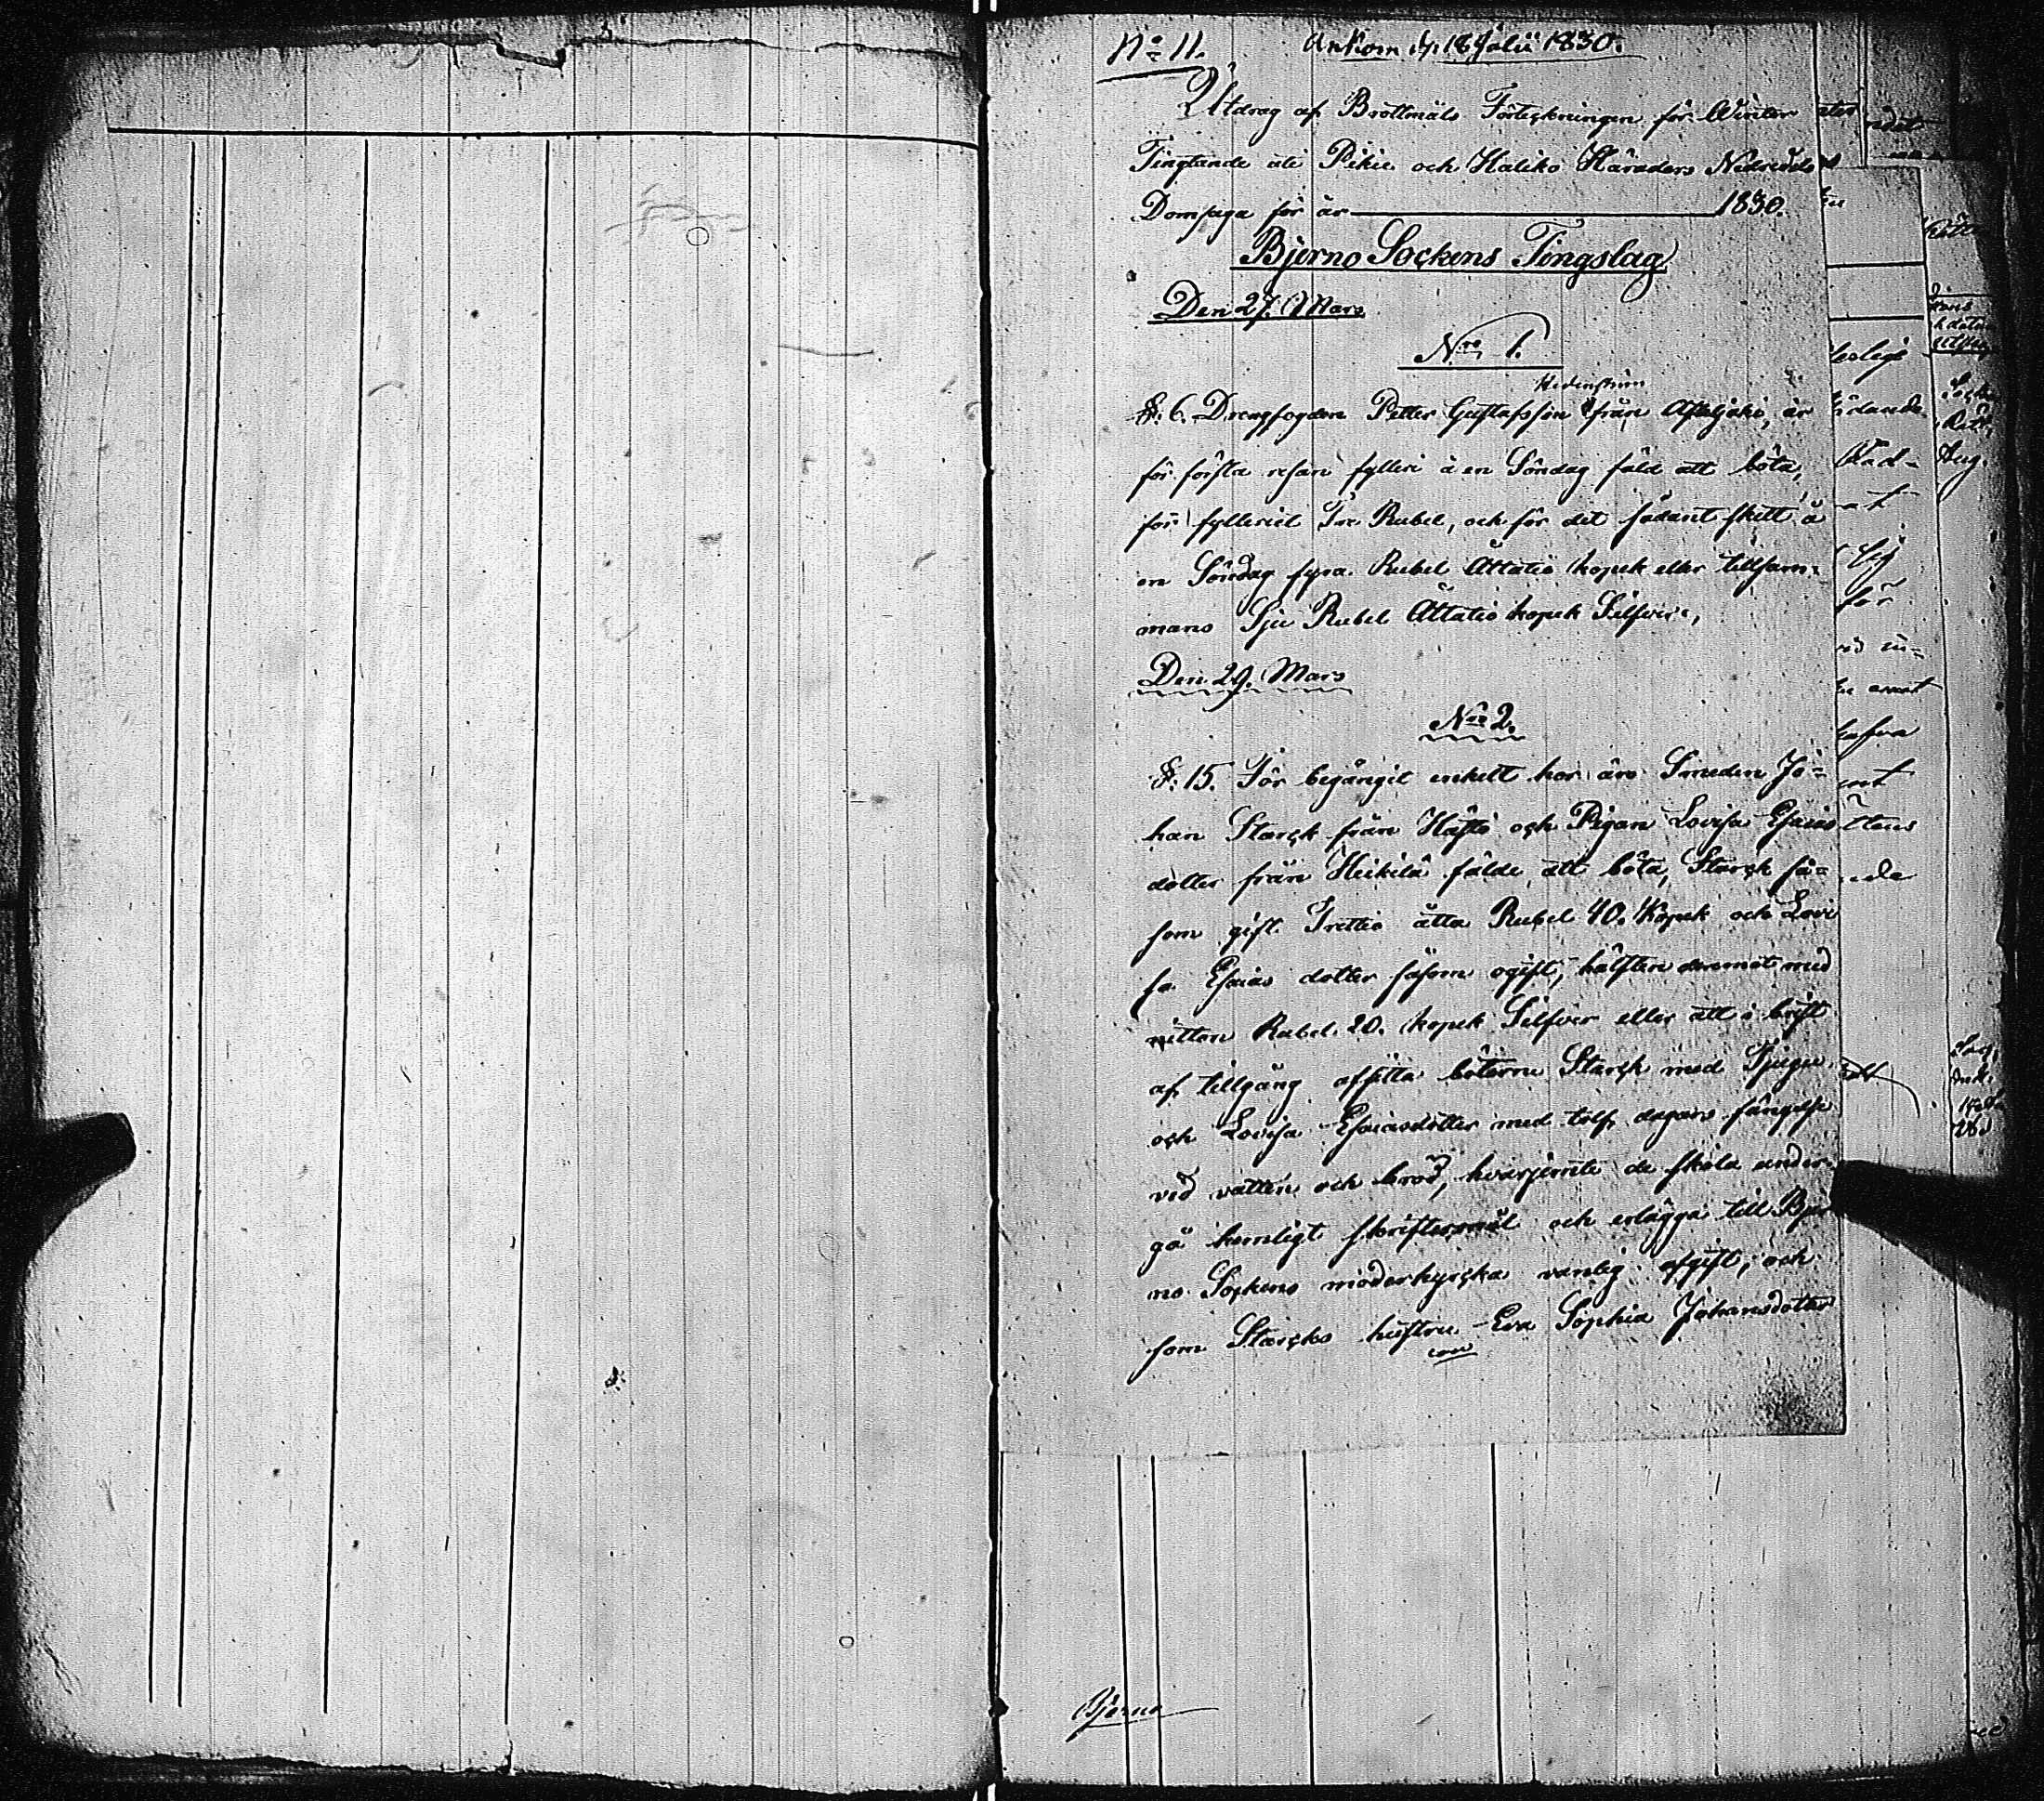 No 11. Ankom d. 18 Julii 1830.
Utdrag af Brottmåls Förteckningen för Winter
Tingtande uti Pikie och Haliko Häraders Nedredels
Domsaga för år 1830.
Bjerno Sockens Tingslag
Den 27. Mars
Nro 1.
Hedenström
§. 6. Drengfogden Petter Gustafsson från, är
för första resan fylleri å en Söndag fäld att böta,
för fylleriet Tre Rubel, och för det sådant skett å
en Söndag fyra Rubel Åttatio kopek eller tillsam-
mans Sju Rubel Åttatio kopek Silfver,
Den 29. Mars
Nro 2.
§. 15. För begångit enkelt hor äro Smeden Jo-
han Starck från och Pigan Lovisa Esaias
dotter från Heikilä fälde att böta, Starck så-
som gift Trettio åtta Rubel 40. Kopek och Lovi
sa Esaias dotter såsom ogift, hälften deremot med
nitton Rubel 20. kopek Silfver eller att i brist
af tillgång afsitta böterne Starck med Tjugu
och Lovisa Esaiasdotter med tolf dagars fängelse
vid vatten och bröd, hvarjemte de skola under-
gå hemligt skriftermål och erlägga till Bjer
no Sockens moderkyrcka vanlig afgift, och
som Starcks hustru Eva Sophia Johansdotter
Bjerno